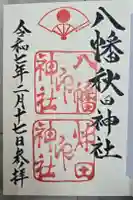 八幡秋田神社
八幡
神社
秋田
神社
令和七年二月十七日参拝